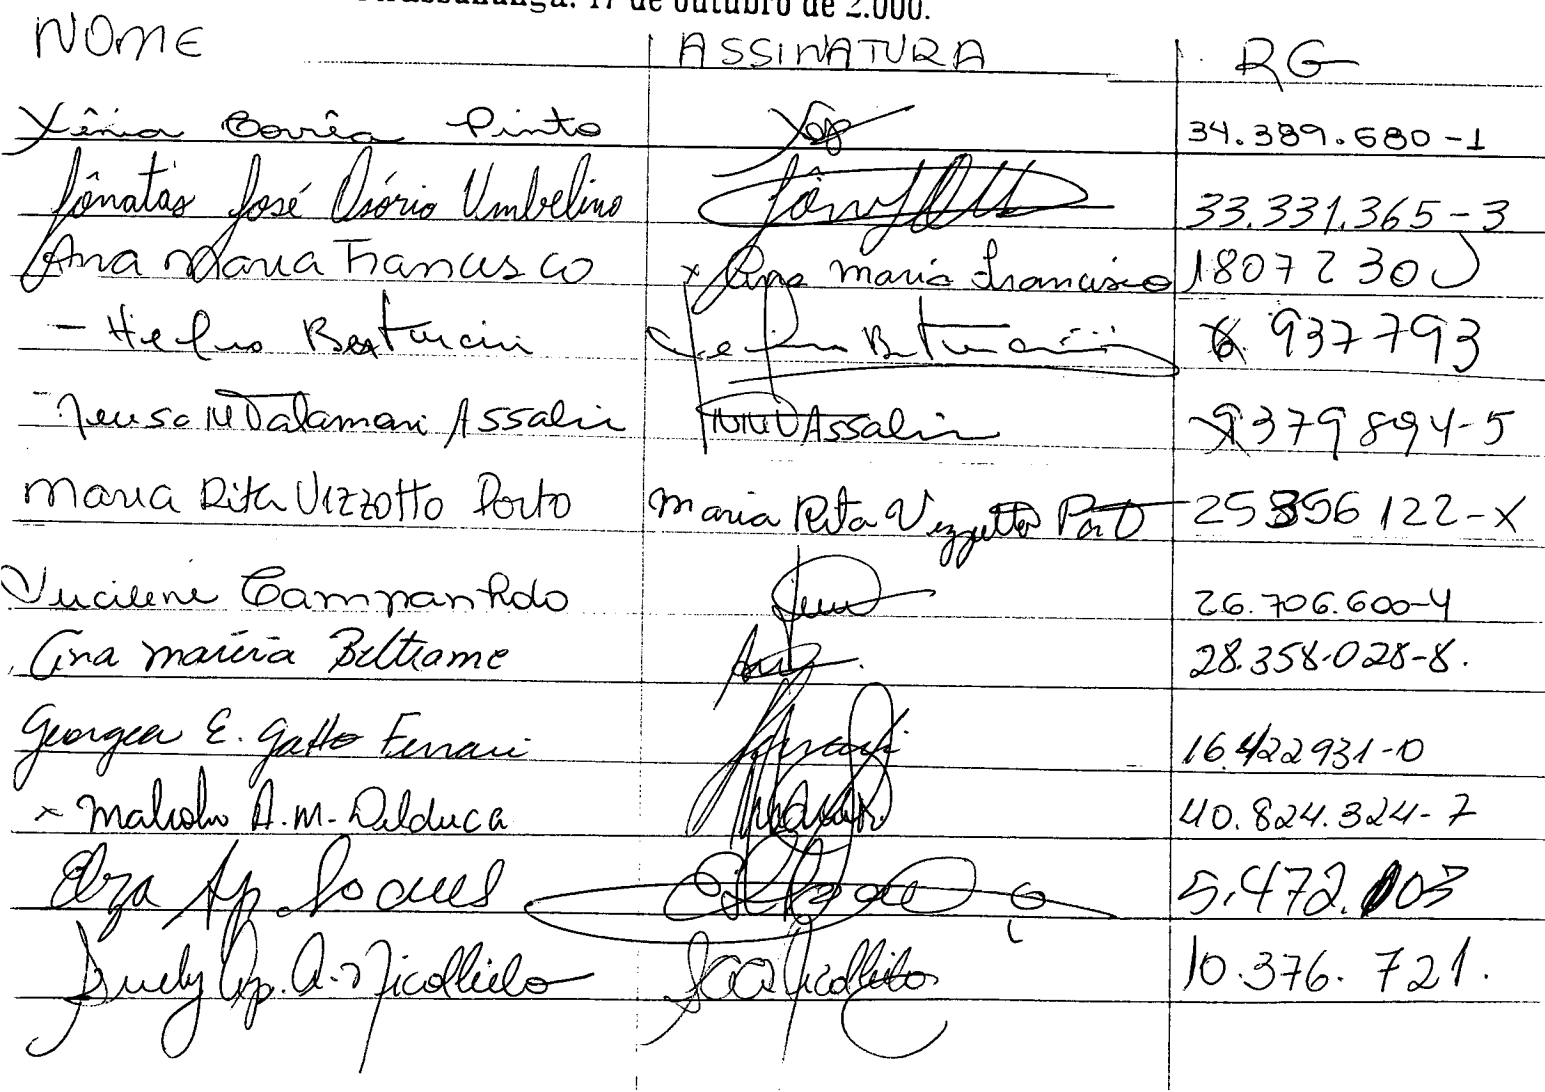 17 de outubro de 2.000.
NOME ASSINATURA RG
Xênia Corrêa Pinto 34.389.680-1
Jônatas José Osório Umbelino 33.331.365-3
Ana Maria Francisco x Ana Maria Francisco 1807230
- Bertucini 937793
- Neusa M Talamoni Assalin Assalin 9379894-5
Maria Rita Vizzotto Porto Maria Rita Vizzotto Porto 25356122-X
Lucilene Campanholo 26.706.600-4
Ana Marcia Beltrame 28.358.028-8.
Georgea E. Gatto Ferrari 16.422931-0
x A.M. Delduca 40.824.324-7
Elza Ap. Soares 5.472.103
Suely Ap. A. Nicolielo 10.376.721.